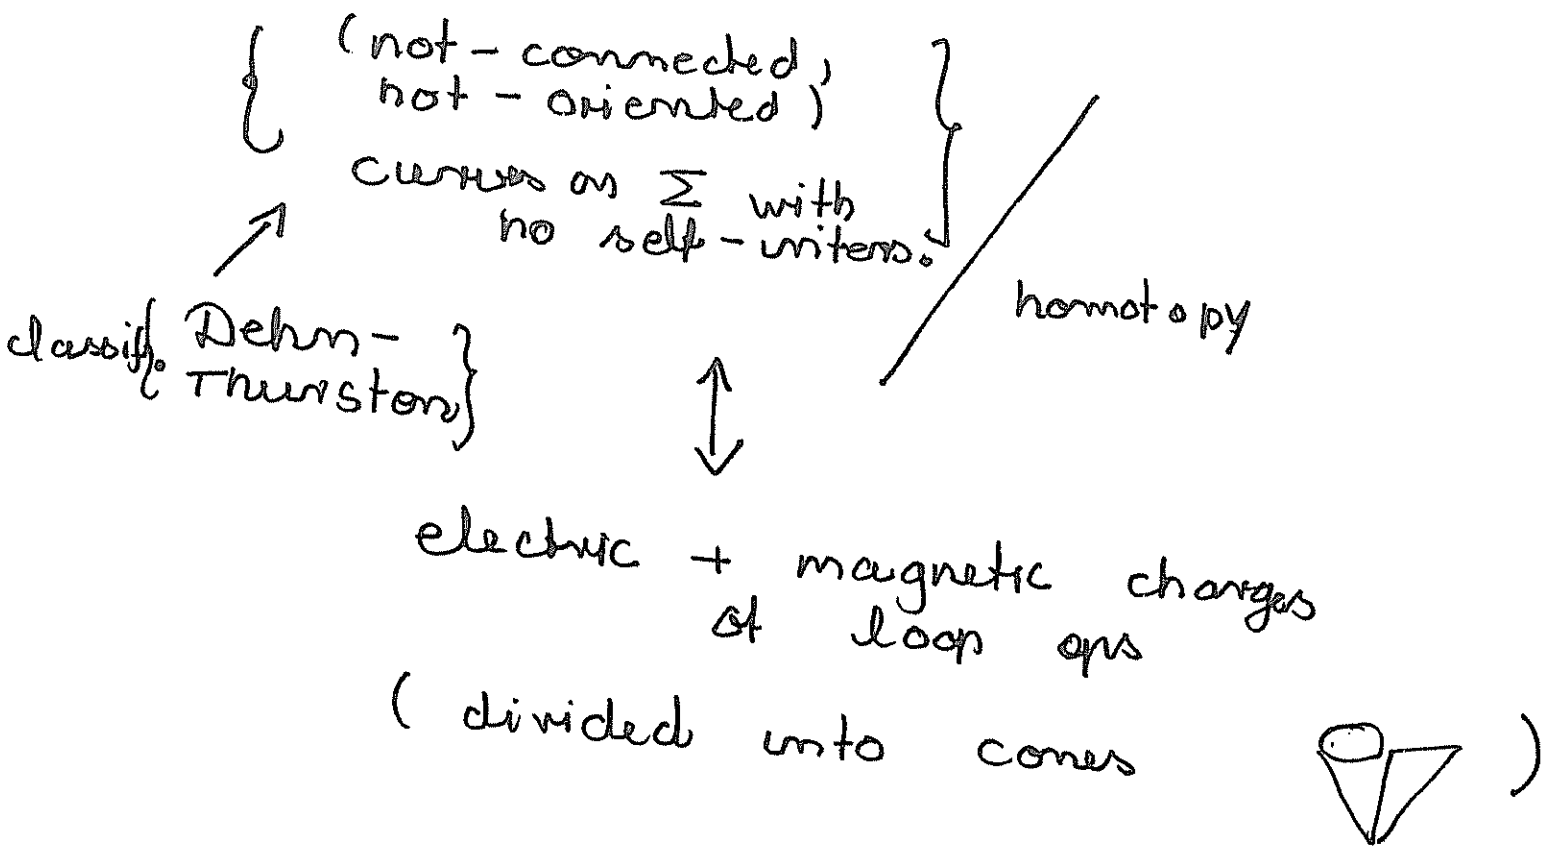 { (not-connected,
not-oriented)
curves on Σ with
no self-inters. } / homotopy
classif. { Dehn-
Thurston }
↕
electric + magnetic charges
of loop ops
( divided into cones )